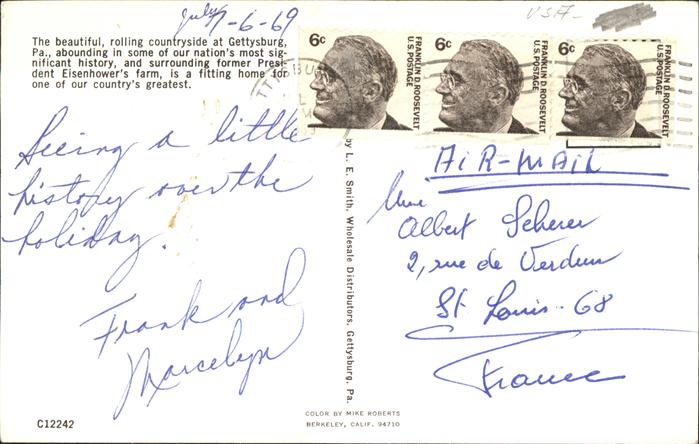 july 7-6-69
USA-
The beautiful, rolling countryside at Gettysburg,
Pa., abounding in some of our nation's most sig-
nificant history, and surrounding former Presi-
dent Eisenhower's farm, is a fitting home for
one of our country's greatest.
6c FRANKLIN D. ROOSEVELT U.S. POSTAGE
6c FRANKLIN D. ROOSEVELT U.S. POSTAGE
6c FRANKLIN D. ROOSEVELT U.S. POSTAGE
Seeing a little
history over the
holiday.
Frank and
Marcelyn
by L. E. Smith, Wholesale Distributors, Gettysburg, Pa.
AIR-MAIL
Mme
Albert Scherer
2, rue de Verdun
St Louis - 68
France
C12242
COLOR BY MIKE ROBERTS
BERKELEY, CALIF. 94710